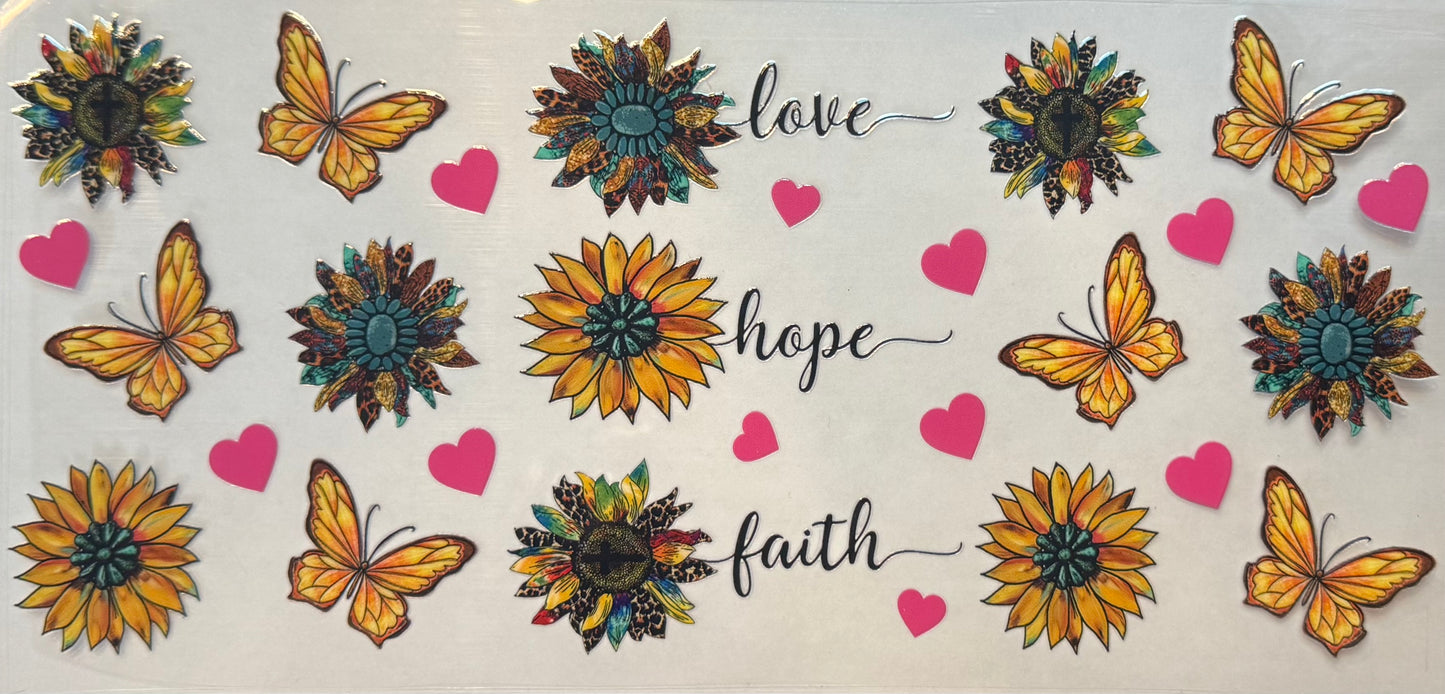 love
hope
faith